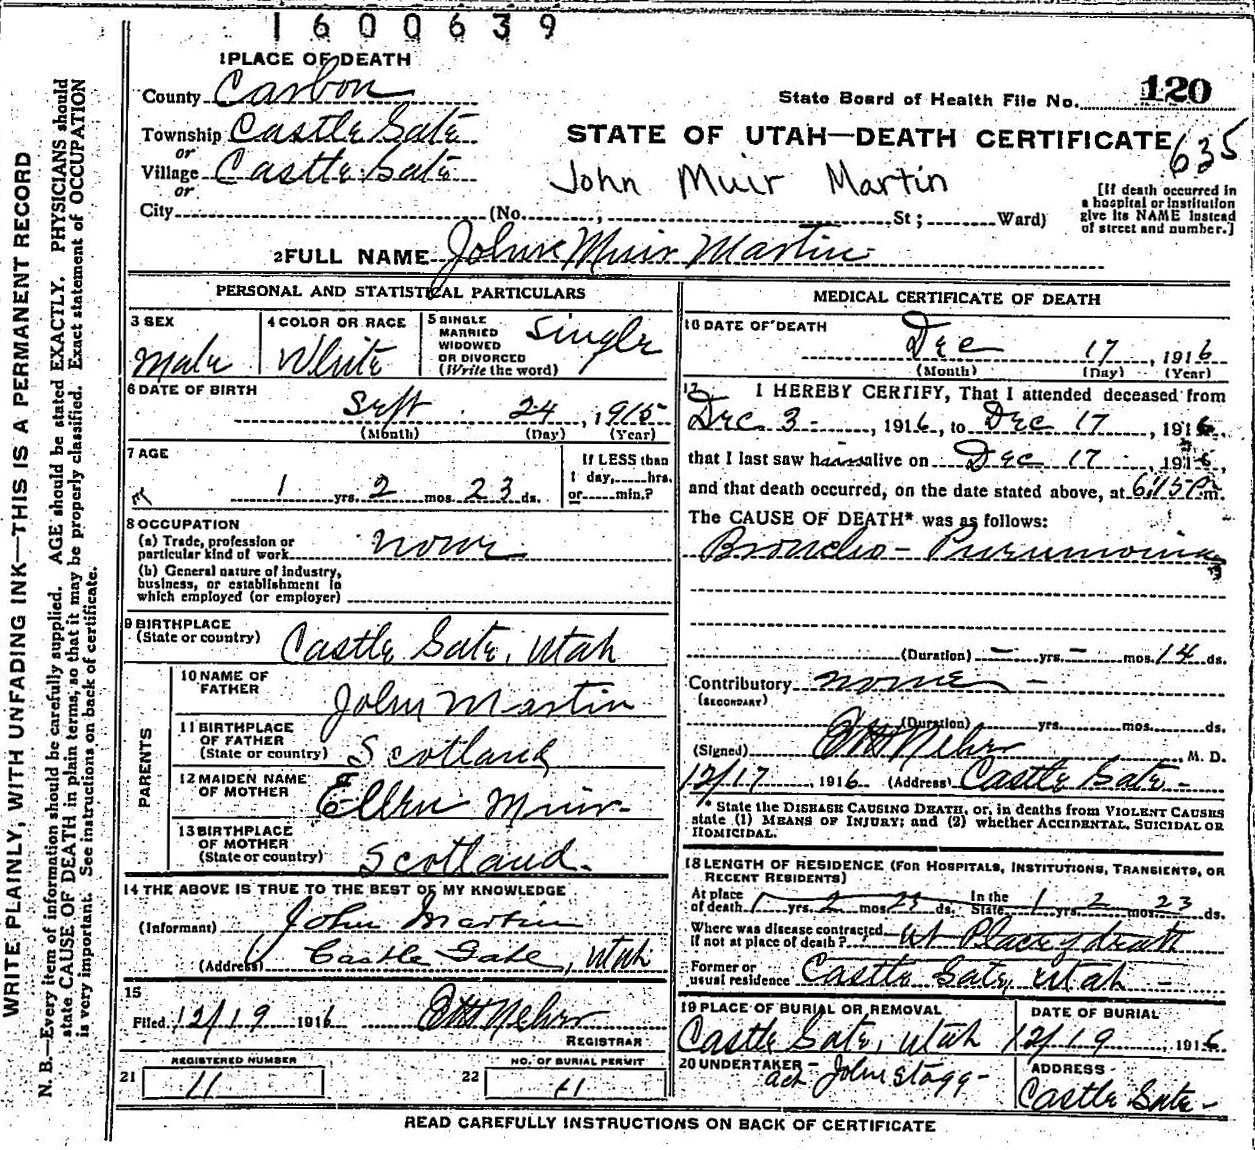 1600639
1 PLACE OF DEATH
County Carbon
State Board of Health File No. 120
Township Castle Gate
STATE OF UTAH—DEATH CERTIFICATE
635
or
Village Castle Gate
John Muir Martin
or
City (No. , St; Ward)
[If death occurred in
a hospital or institution
give its NAME instead
of street and number.]
2 FULL NAME John Muir Martin
PERSONAL AND STATISTICAL PARTICULARS
3 SEX
Male
4 COLOR OR RACE
White
5 SINGLE
MARRIED
WIDOWED
OR DIVORCED
(Write the word)
Single
6 DATE OF BIRTH
Sept 24, 1915
(Month) (Day) (Year)
7 AGE
1 yrs. 2 mos. 23 ds.
If LESS than
1 day, hrs.
or min.?
8 OCCUPATION
(a) Trade, profession or
particular kind of work none
(b) General nature of industry,
business, or establishment in
which employed (or employer)
9 BIRTHPLACE
(State or country) Castle Gate, Utah
PARENTS
10 NAME OF
FATHER John Martin
11 BIRTHPLACE
OF FATHER
(State or country) Scotland
12 MAIDEN NAME
OF MOTHER Ellen Muir
13 BIRTHPLACE
OF MOTHER
(State or country) Scotland.
14 THE ABOVE IS TRUE TO THE BEST OF MY KNOWLEDGE
(Informant) John Martin
(Address) Castle Gate, Utah
15
Filed 12/19 1916
REGISTRAR
REGISTERED NUMBER
21 11
NO. OF BURIAL PERMIT
22 11
MEDICAL CERTIFICATE OF DEATH
16 DATE OF DEATH
Dec 17, 1916
(Month) (Day) (Year)
17 I HEREBY CERTIFY, That I attended deceased from
Dec 3 -, 1916, to Dec 17, 1916.
that I last saw him alive on Dec 17, 1916,
and that death occurred, on the date stated above, at 6:15 P.m.
The CAUSE OF DEATH* was as follows:
Broncho - Pneumonia
(Duration) - yrs. - mos. 14 ds.
Contributory none -
(SECONDARY)
(Duration) yrs. mos. ds.
(Signed) M. D.
12/17, 1916 (Address) Castle Gate -
* State the DISEASE CAUSING DEATH, or, in deaths from VIOLENT CAUSES
state (1) MEANS OF INJURY; and (2) whether ACCIDENTAL, SUICIDAL OR
HOMICIDAL.
18 LENGTH OF RESIDENCE (FOR HOSPITALS, INSTITUTIONS, TRANSIENTS, OR
RECENT RESIDENTS)
At place
of death 1 yrs. 2 mos. 23 ds.
In the
State 1 yrs. 2 mos. 23 ds.
Where was disease contracted
If not at place of death? at Place of death
Former or
usual residence Castle Gate, Utah -
19 PLACE OF BURIAL OR REMOVAL
Castle Gate, Utah
DATE OF BURIAL
12/19, 1916
20 UNDERTAKER
John Stagg -
ADDRESS
Castle Gate -
READ CAREFULLY INSTRUCTIONS ON BACK OF CERTIFICATE
WRITE PLAINLY, WITH UNFADING INK—THIS IS A PERMANENT RECORD
N. B.—Every item of information should be carefully supplied. AGE should be stated EXACTLY. PHYSICIANS should
state CAUSE OF DEATH in plain terms, so that it may be properly classified. Exact statement of OCCUPATION
is very important. See instructions on back of certificate.